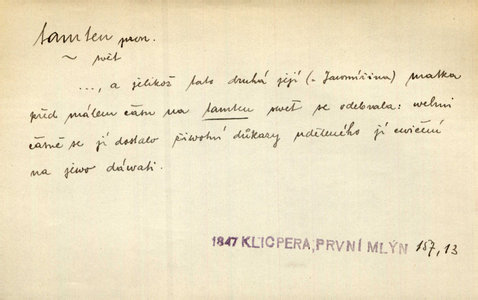 tamten pron.
~ svět
..., a jelikož tato druhá její (= Jaromířina) matka
před málem čásu na tamten svět se odebrala: welmi
častě se jí dostalo životní důkazy uděleného jí cvičení
na jewo dáwati.
1847 KLICPERA, PRVNÍ MLÝN 157, 13